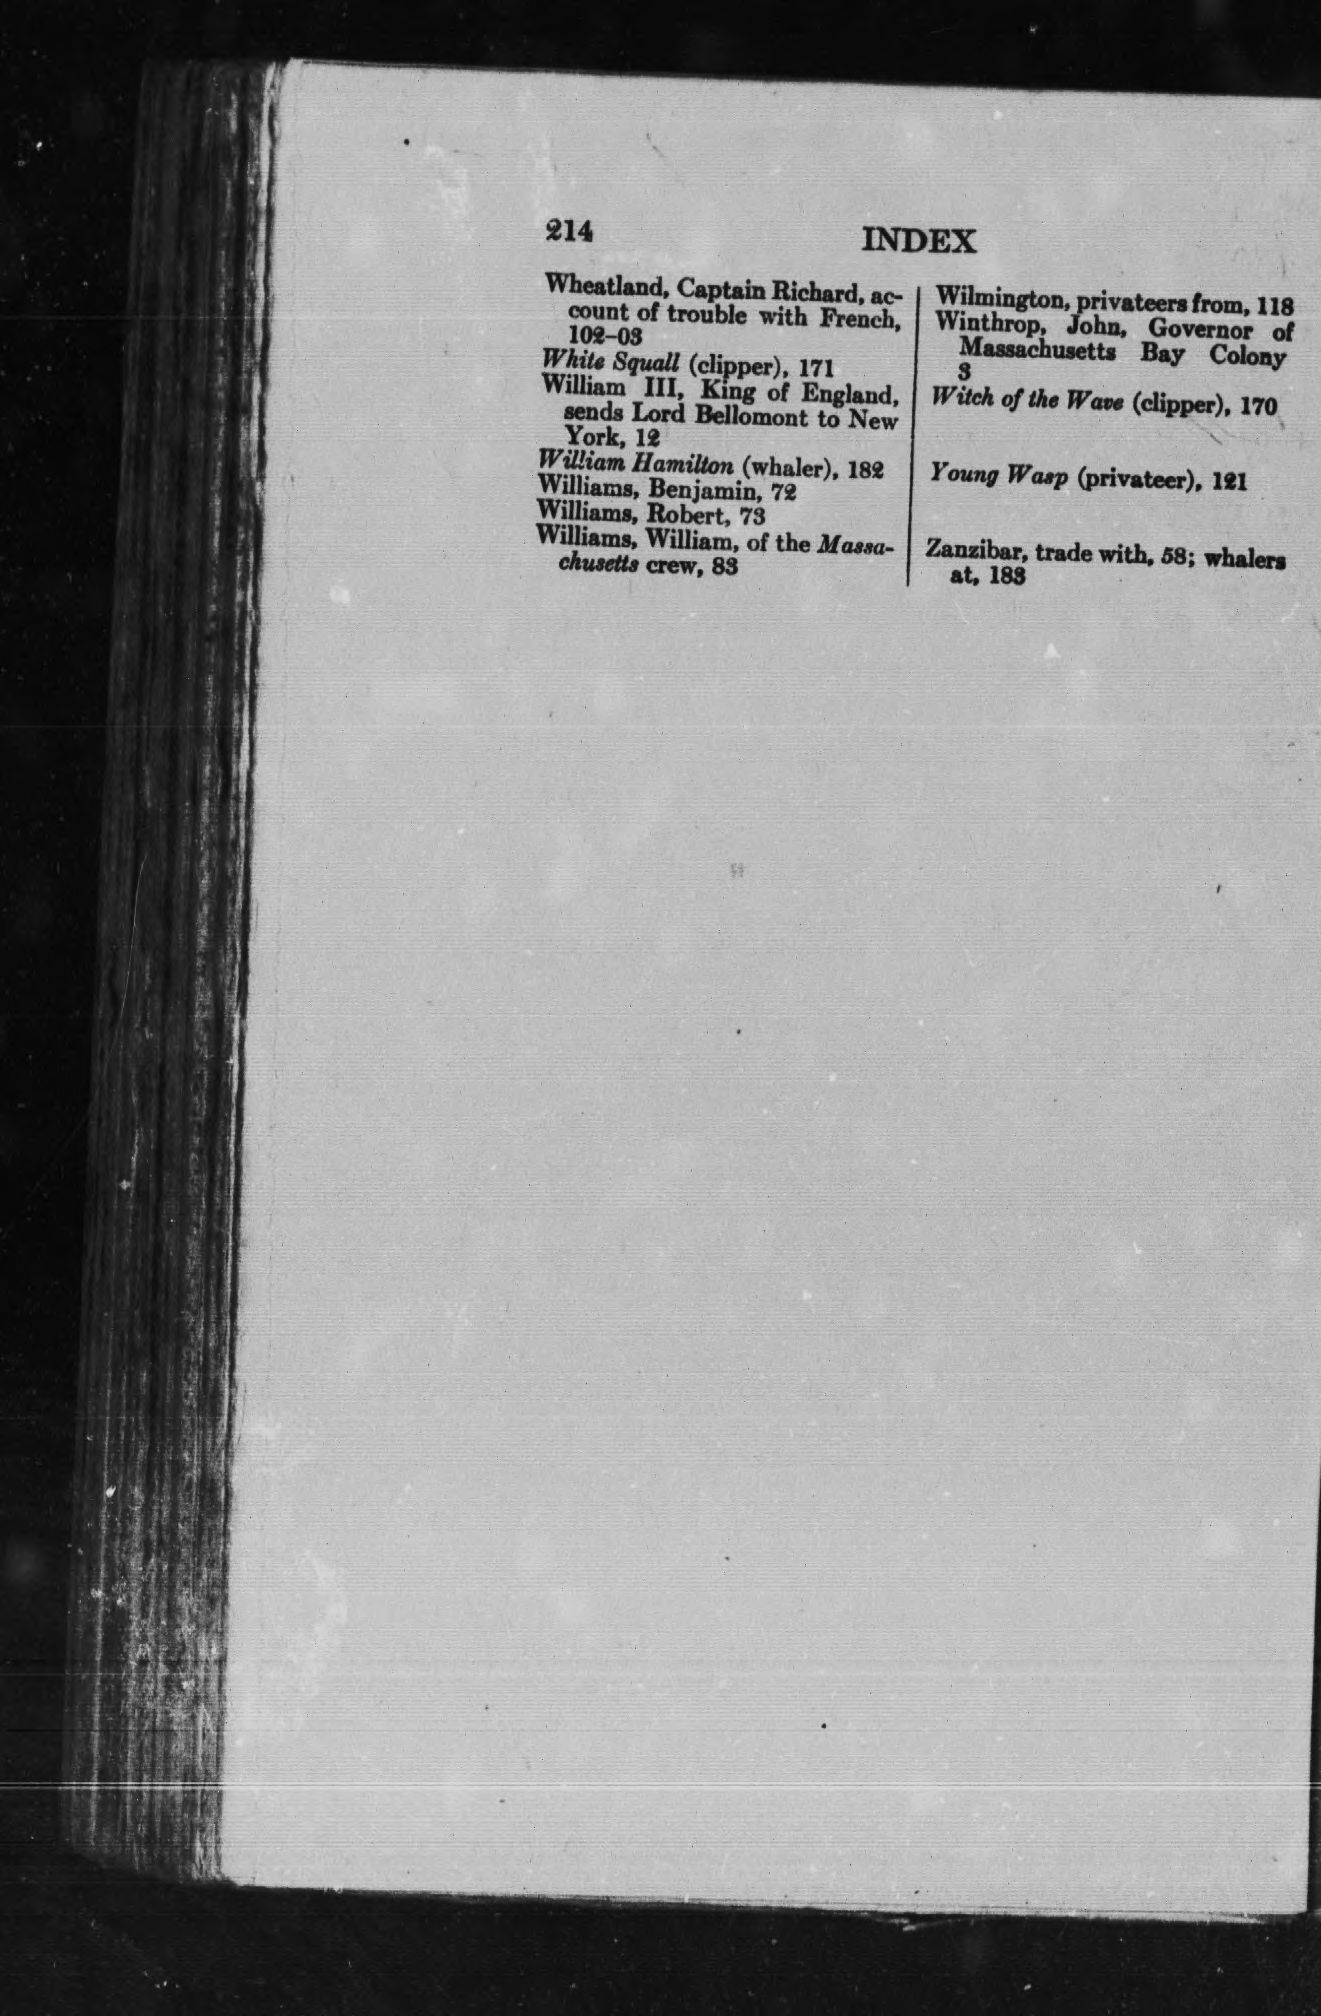 214 INDEX
Wheatland, Captain Richard, ac-
count of trouble with French,
102-03
White Squall (clipper), 171
William III, King of England,
sends Lord Bellomont to New
York, 12
William Hamilton (whaler), 182
Williams, Benjamin, 72
Williams, Robert, 73
Williams, William, of the Massa-
chusetts crew, 83
Wilmington, privateers from, 118
Winthrop, John, Governor of
Massachusetts Bay Colony
3
Witch of the Wave (clipper), 170
Young Wasp (privateer), 121
Zanzibar, trade with, 58; whalers
at, 183